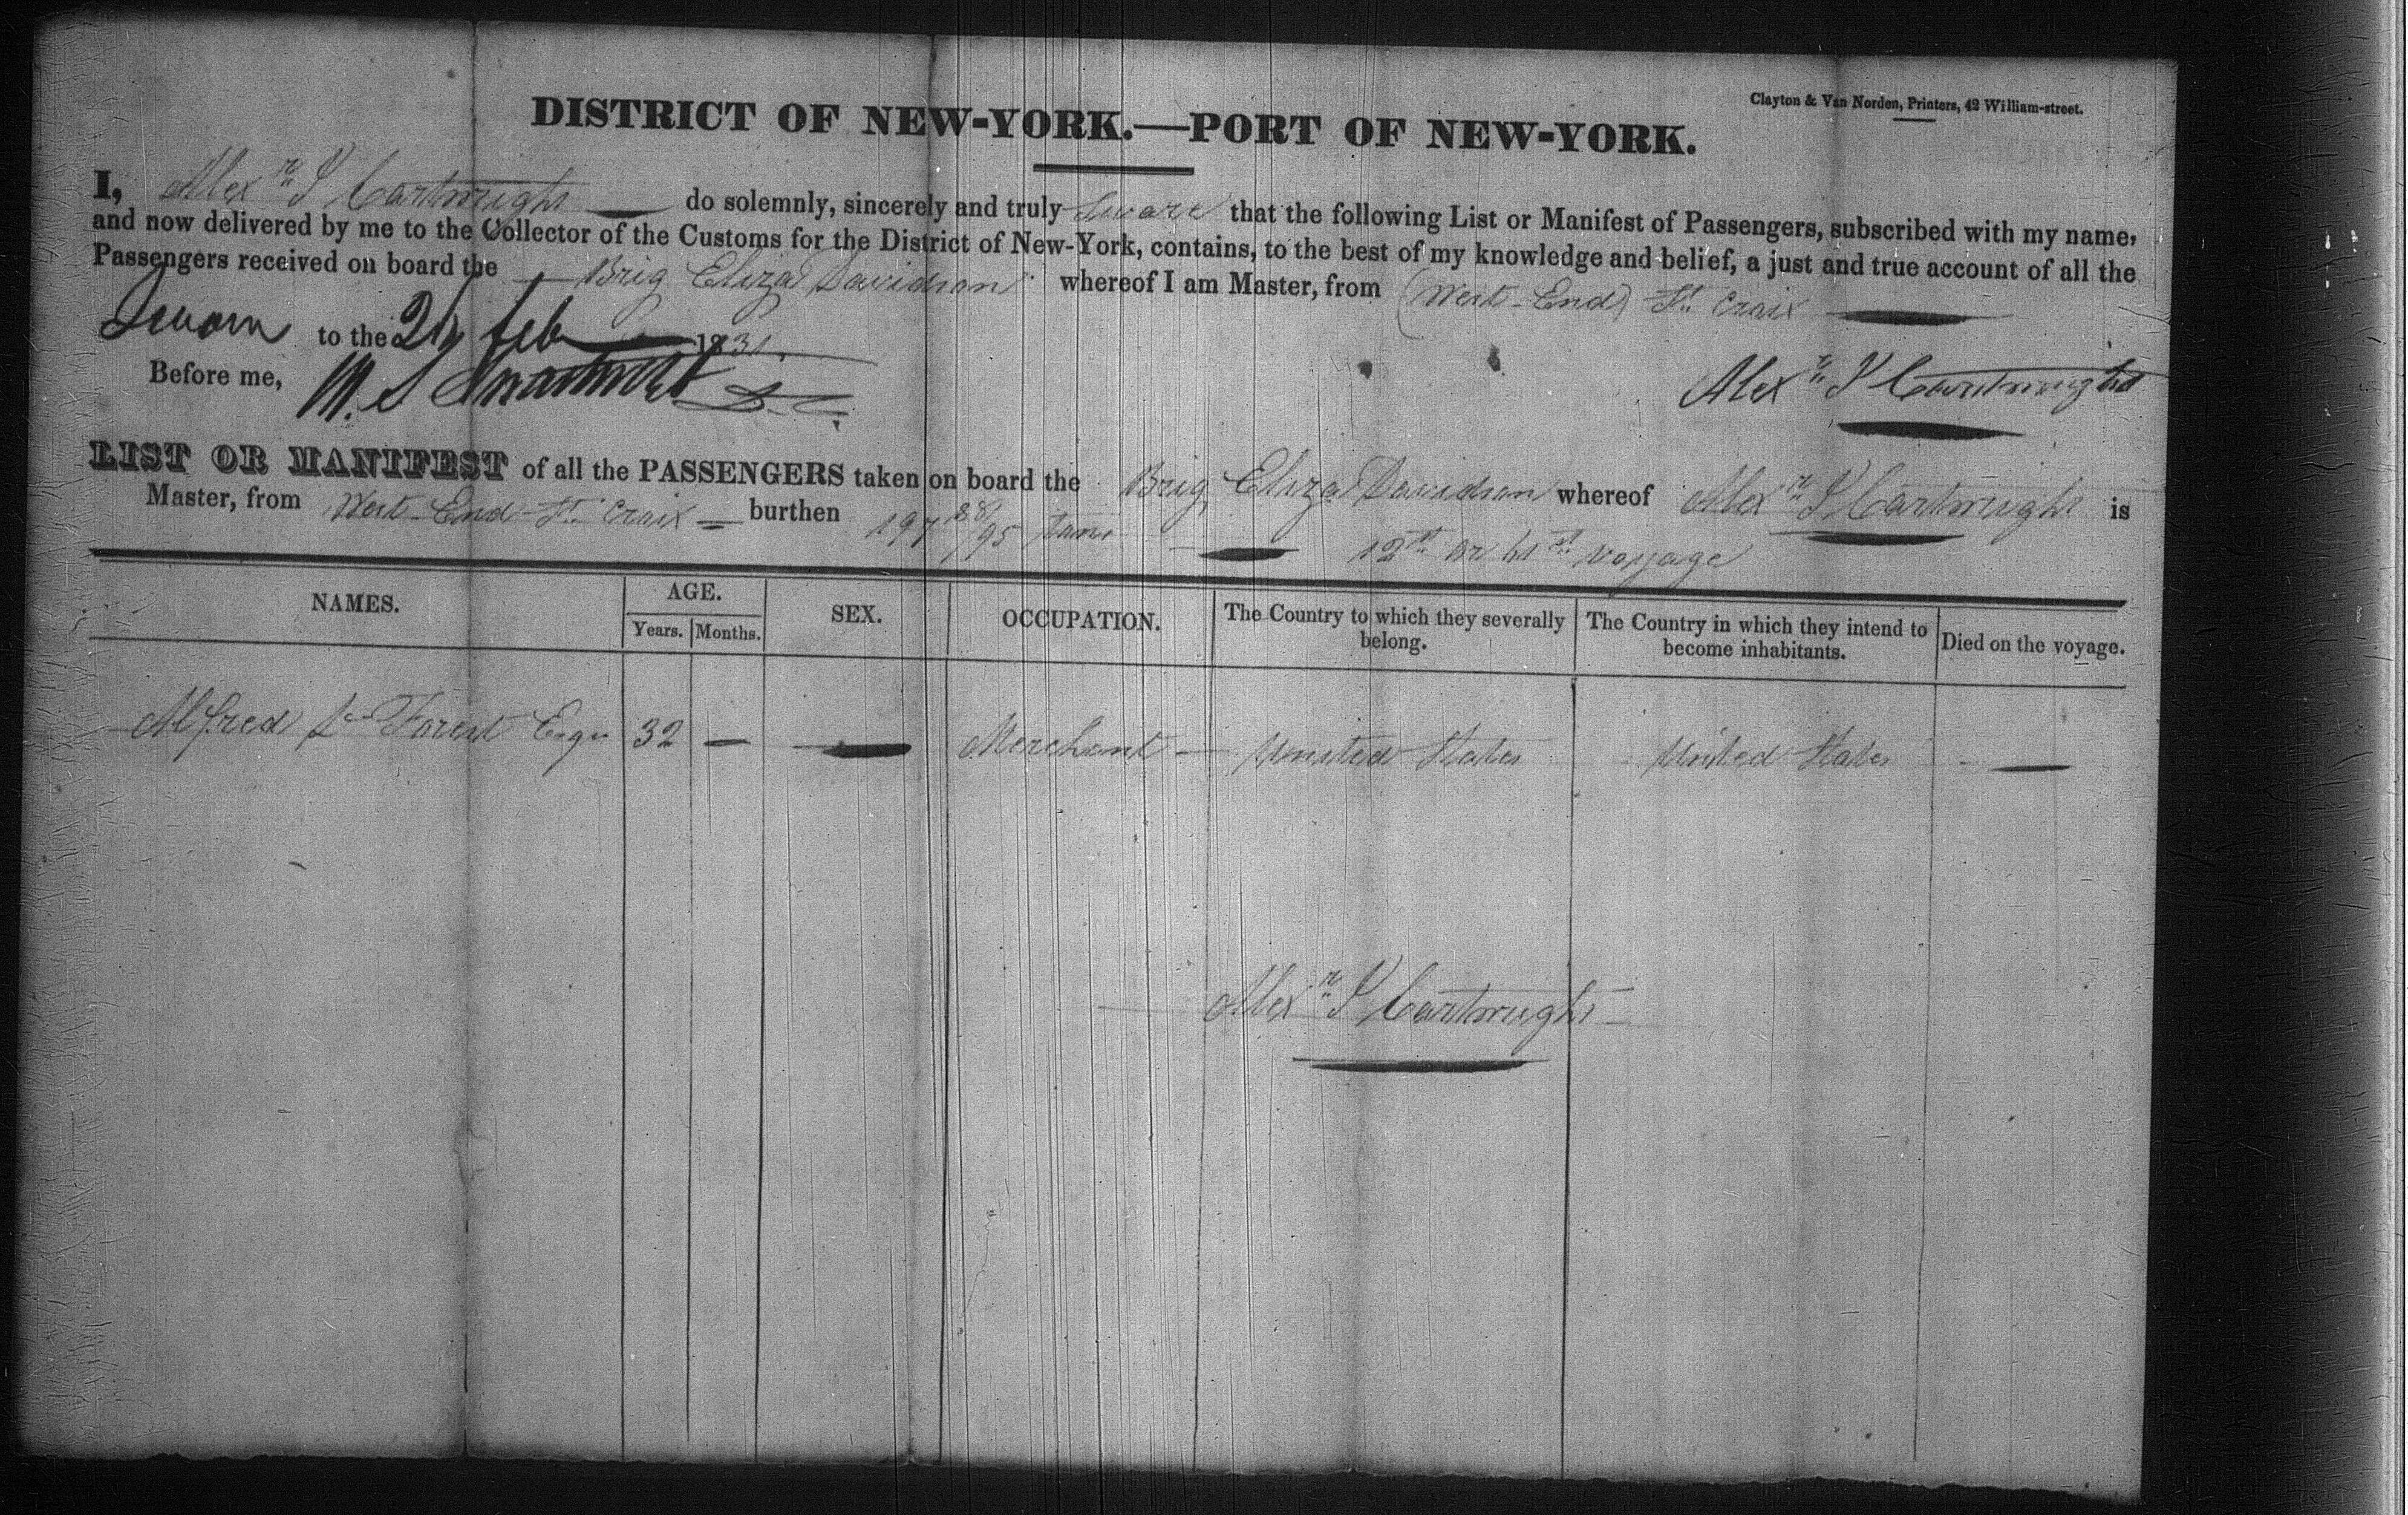 Clayton & Van Norden, Printers, 42 William-street.
DISTRICT OF NEW-YORK.—PORT OF NEW-YORK.
I, Alexr J Cartwright do solemnly, sincerely and truly sware that the following List or Manifest of Passengers, subscribed with my name,
and now delivered by me to the Collector of the Customs for the District of New-York, contains, to the best of my knowledge and belief, a just and true account of all the
Passengers received on board the Brig Eliza Davidson whereof I am Master, from (West End) St Croix
Sworn to the Feb 1831.
Before me,
Alexr J Cartwright
LIST OR MANIFEST of all the PASSENGERS taken on board the Brig Eliza Davidson whereof Alexr J Cartwright is
Master, from West End St Croix burthen 197 88/95 tons
12th or voyage
NAMES. AGE. SEX. OCCUPATION. The Country to which they severally belong. The Country in which they intend to become inhabitants. Died on the voyage.
Years. Months.
Alfred De Forest Esqr 32 — — Merchant — United States United States —
Alexr J Cartwright